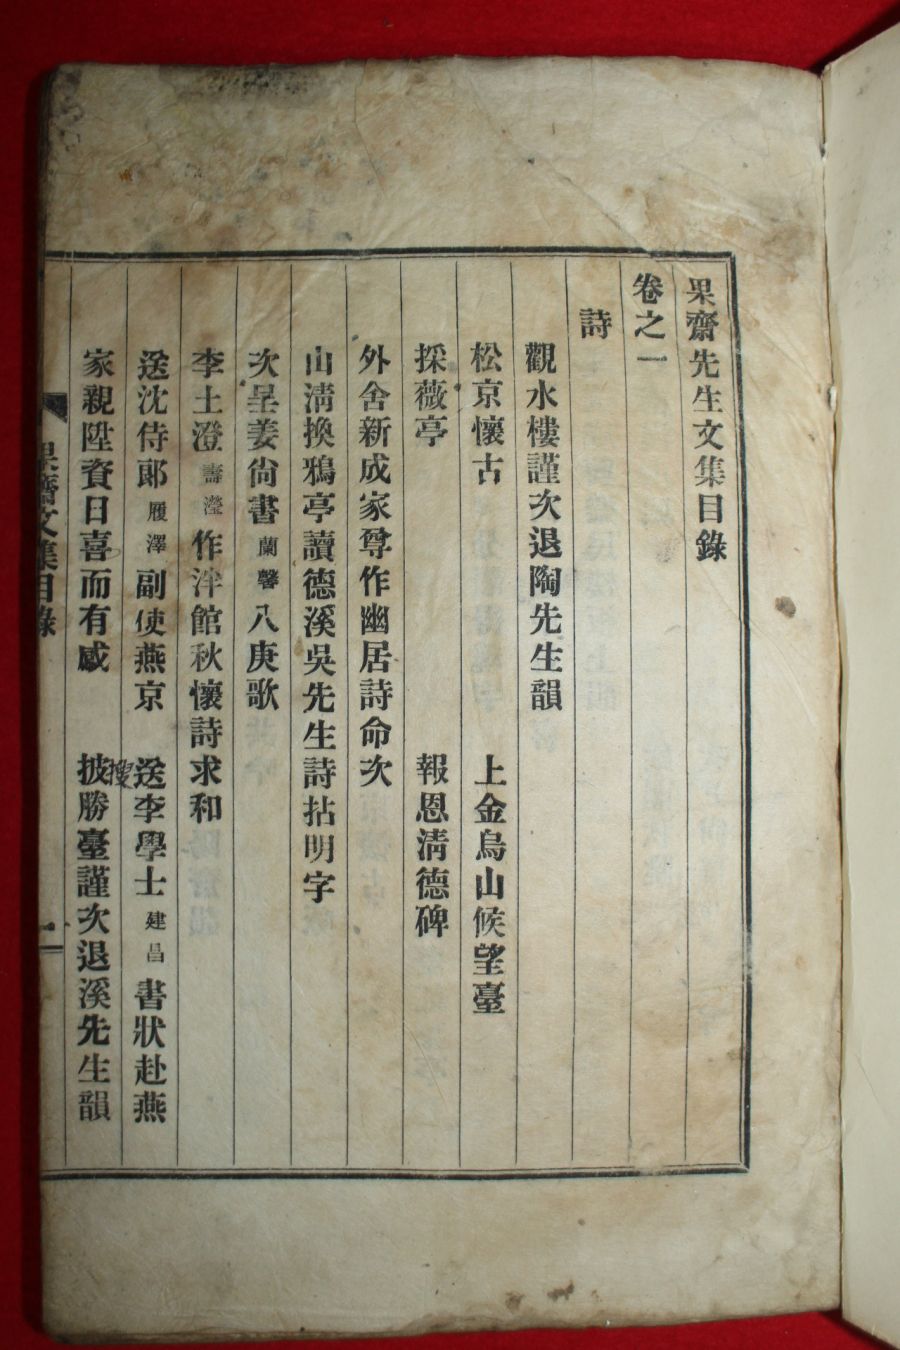 果齋先生文集目錄
卷之一
詩
觀水樓謹次退陶先生韻
松京懷古 上金烏山候望臺
採薇亭 報恩淸德碑
外舍新成家尊作幽居詩命次
山淸換鵝亭讀德溪吳先生詩拈明字
次呈姜尙書蘭馨八庚歌
李士澄壽瀅作泮館秋懷詩求和
送沈侍郞履澤副使燕京 送李學士建昌書狀赴燕
家親陞資日喜而有感 披勝臺謹次退溪先生韻
搜
果齋文集目錄 一